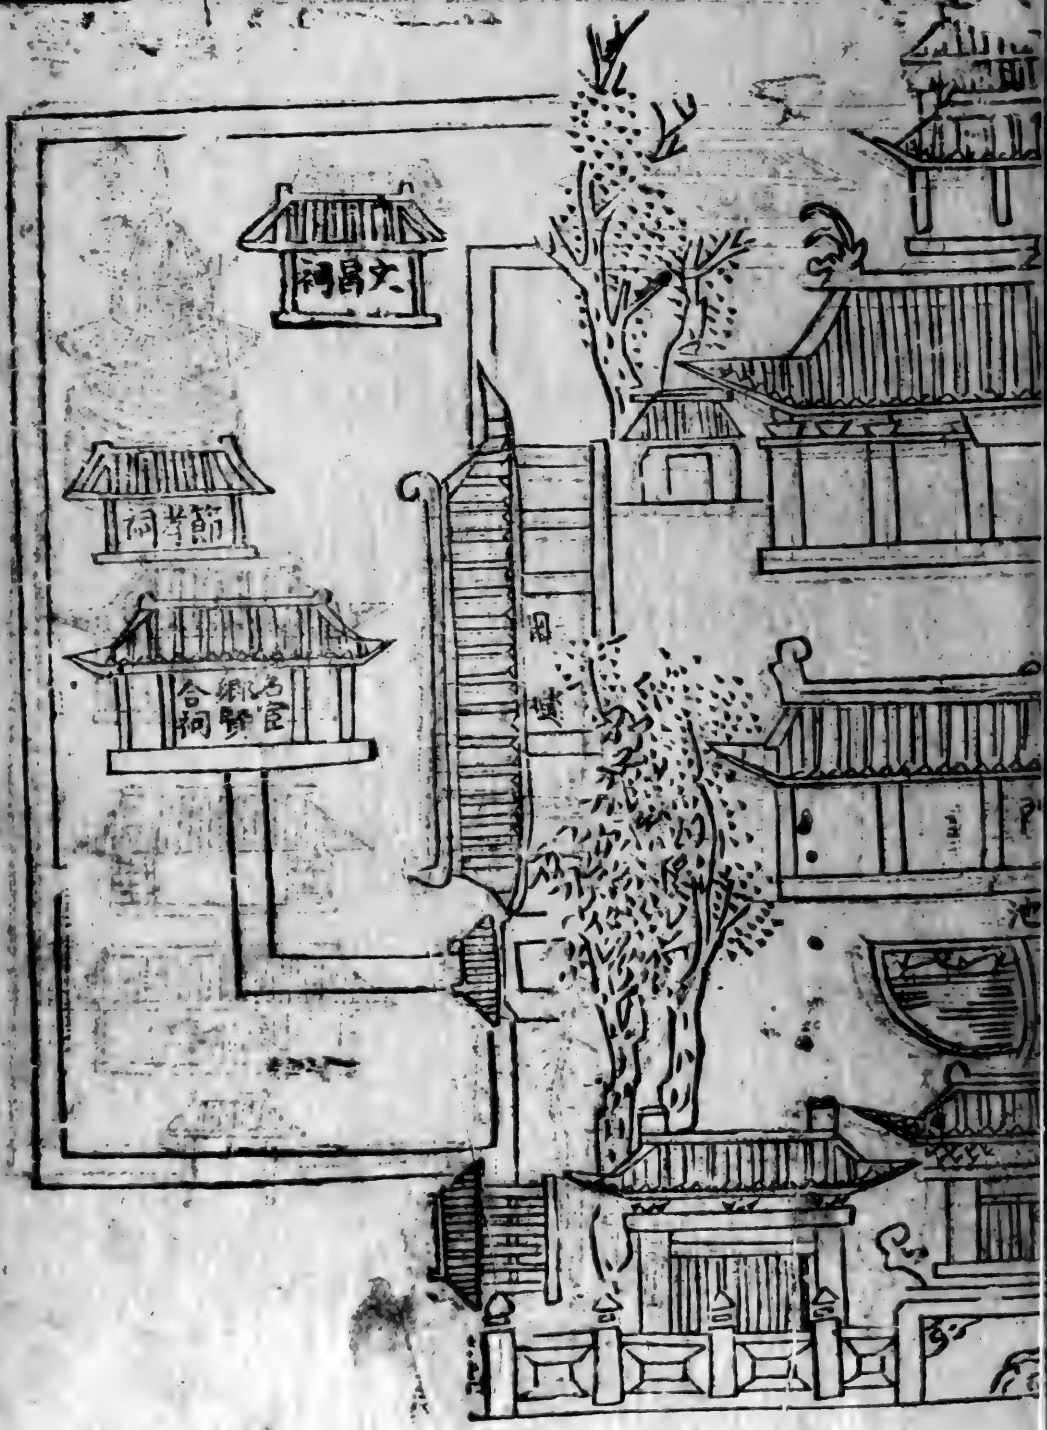 文昌祠
節孝祠
名宦
鄉賢
合祠
池